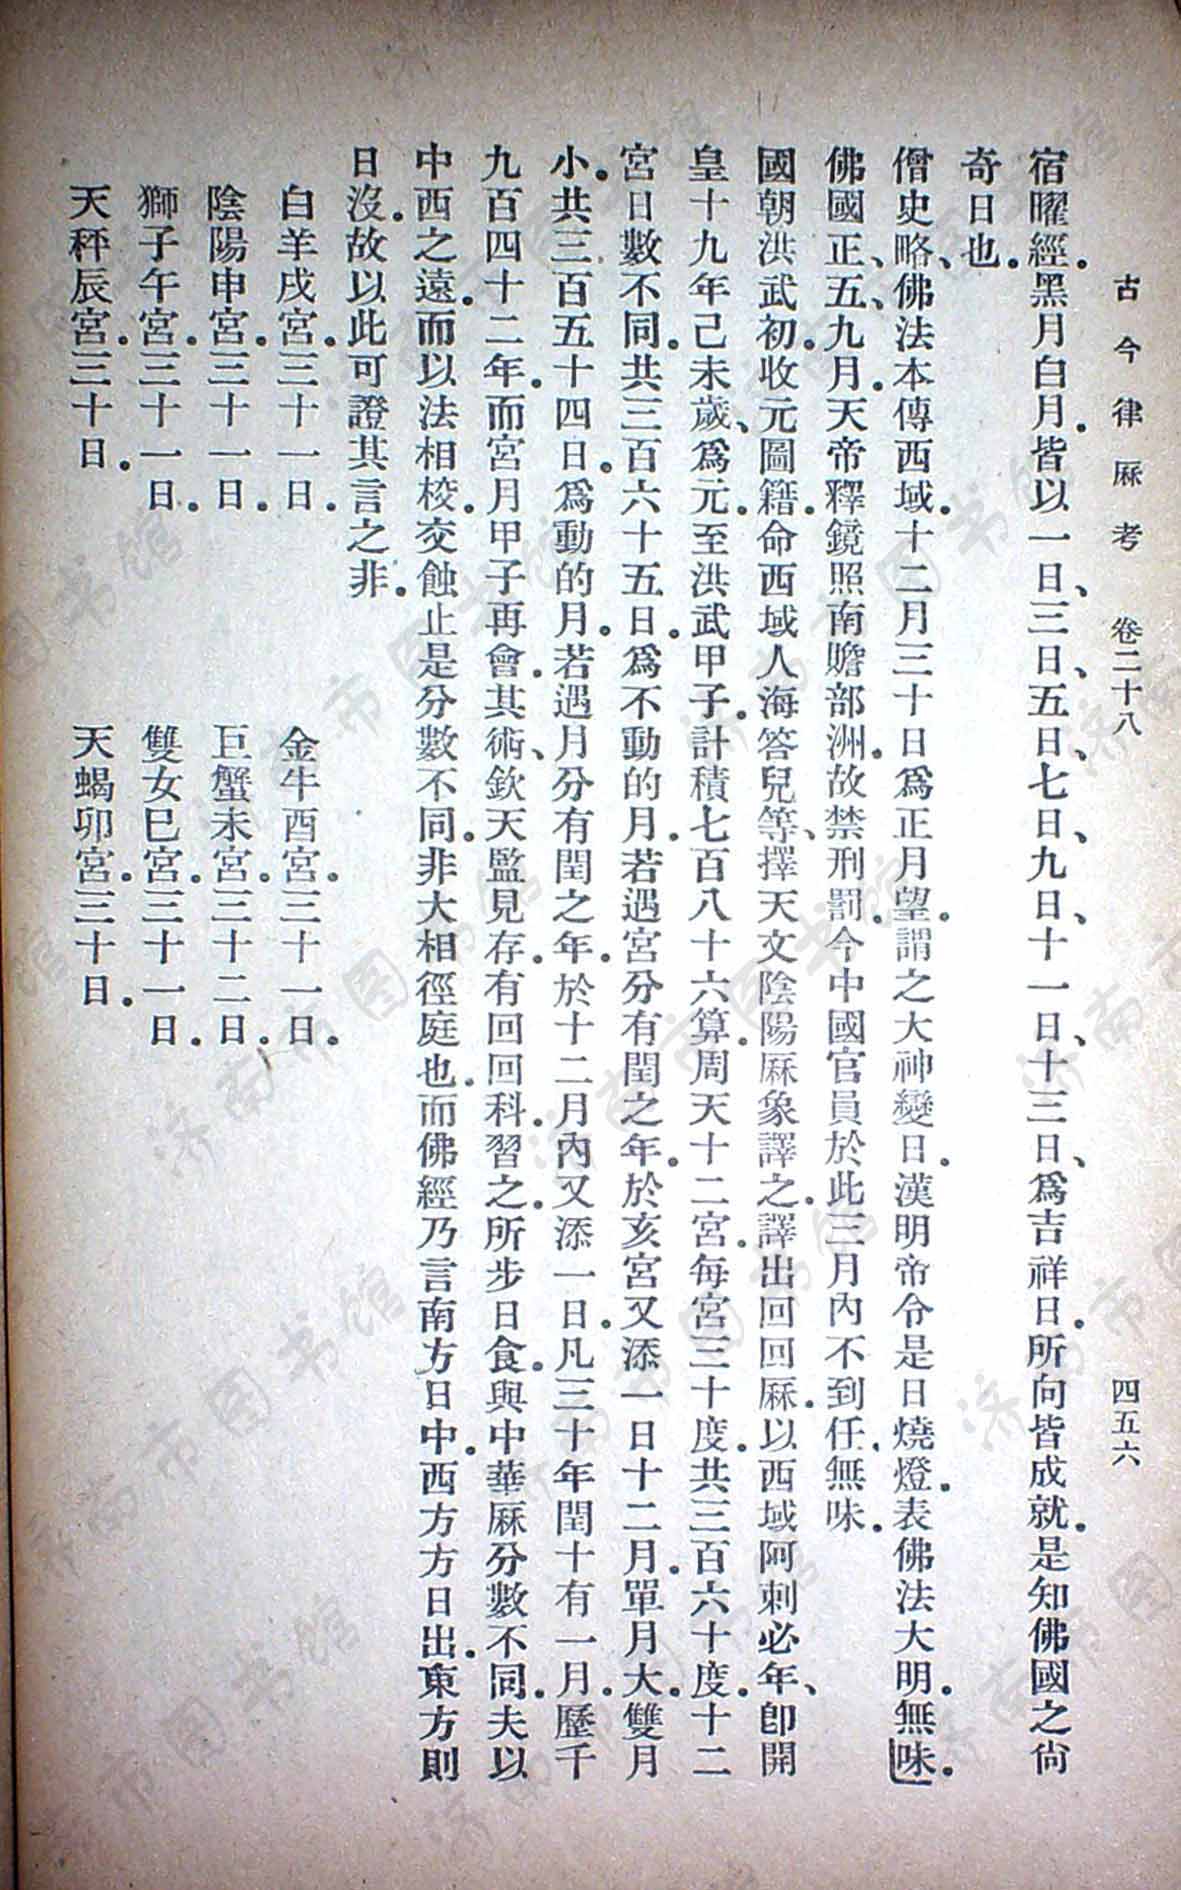 古今律厤考　卷二十八　四五六
宿曜經。黑月白月。皆以一日、三日、五日、七日、九日、十一日、十三日、爲吉祥日。所向皆成就。是知佛國之尙
奇日也。
僧史略、佛法本傳西域。十二月三十日爲正月望。謂之大神變日。漢明帝令是日燒燈。表佛法大明。無味。
佛國正、五、九月。天帝釋鏡照南贍部洲。故禁刑罰。今中國官員於此三月內不到任、無味。
國朝洪武初。收元圖籍。命西域人海答兒等、擇天文陰陽厤象譯之。譯出回回厤。以西域阿刺必年、卽開
皇十九年己未歲、爲元。至洪武甲子。計積七百八十六算。周天十二宮。每宮三十度。共三百六十度。十二
宮日數不同。共三百六十五日。爲不動的月。若遇宮分有閏之年。於亥宮又添一日十二月。單月大。雙月
小。共三百五十四日。爲動的月。若遇月分有閏之年。於十二月內又添一日。凡三十年閏十有一月。歷千
九百四十二年。而宮月甲子再會。其術、欽天監見存。有回回科。習之。所步日食。與中華厤分數不同。夫以
中西之遠。而以法相校。交蝕止是分數不同。非大相徑庭也。而佛經乃言南方日中。西方方日出。東方則
日沒。故以此可證其言之非。
白羊戌宮。三十一日。　金牛酉宮。三十一日。
陰陽申宮。三十一日。　巨蟹未宮。三十二日。
獅子午宮。三十一日。　雙女巳宮。三十一日。
天秤辰宮。三十日。　天蝎卯宮。三十日。
济南市图书馆